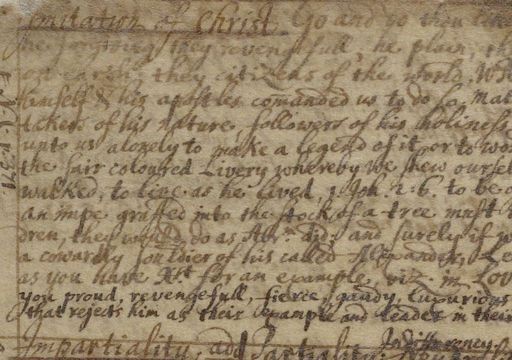 Imitation of Christ. Go and do thou like
he forgiving, they revengefull, he plain, th
on earth, they citizens of the world. Wh
himself & his apostles comanded us to do so, Mat
takers of his nature, followers of his holiness
unto us alonely to make a legend of it, or to wo
the fair coloured Livery whereby we shew oursel
walked, to live as he lived, 1 Joh. 2. 6. to be
an impe graffed into the stock of a tree must
dren, they would do as Abr.m did, and surely if
a cowardly souldier of his called Alexander,
as you have Xst for an example, viz. in Lov
you proud, revengefull, fierce, gaudy, luxurious
that rejects him as their example and leader in their
Indifferency.
Impartiality, and partiality.